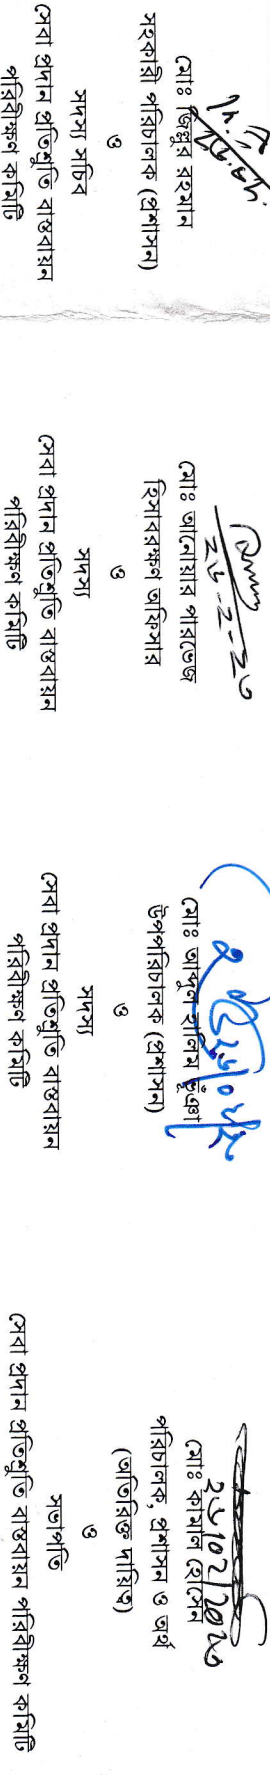 মোঃ জিল্লুর রহমান
সহকারী পরিচালক (প্রশাসন)
ও
সদস্য সচিব
সেবা প্রদান প্রতিশ্রুতি বাস্তবায়ন
পরিবীক্ষণ কমিটি
২৬-২-২৩
মোঃ আনোয়ার পারভেজ
হিসাবরক্ষণ অফিসার
ও
সদস্য
সেবা প্রদান প্রতিশ্রুতি বাস্তবায়ন
পরিবীক্ষণ কমিটি
মোঃ আব্দুল হালিম ভূঁঞা
উপপরিচালক (প্রশাসন)
ও
সদস্য
সেবা প্রদান প্রতিশ্রুতি বাস্তবায়ন
পরিবীক্ষণ কমিটি
২৬/০২/২০২৩
মোঃ কামাল হোসেন
পরিচালক, প্রশাসন ও অর্থ
(অতিরিক্ত দায়িত্ব)
ও
সভাপতি
সেবা প্রদান প্রতিশ্রুতি বাস্তবায়ন পরিবীক্ষণ কমিটি